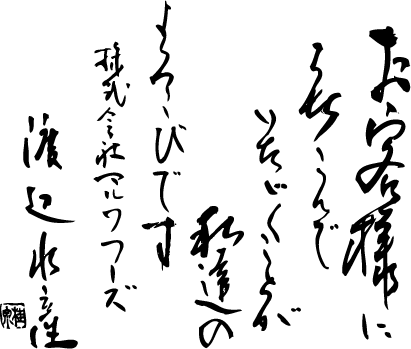 お客様に
よろこんで
いただくことが
私達の
よろこびです
株式会社マルワフーズ
渡辺水産